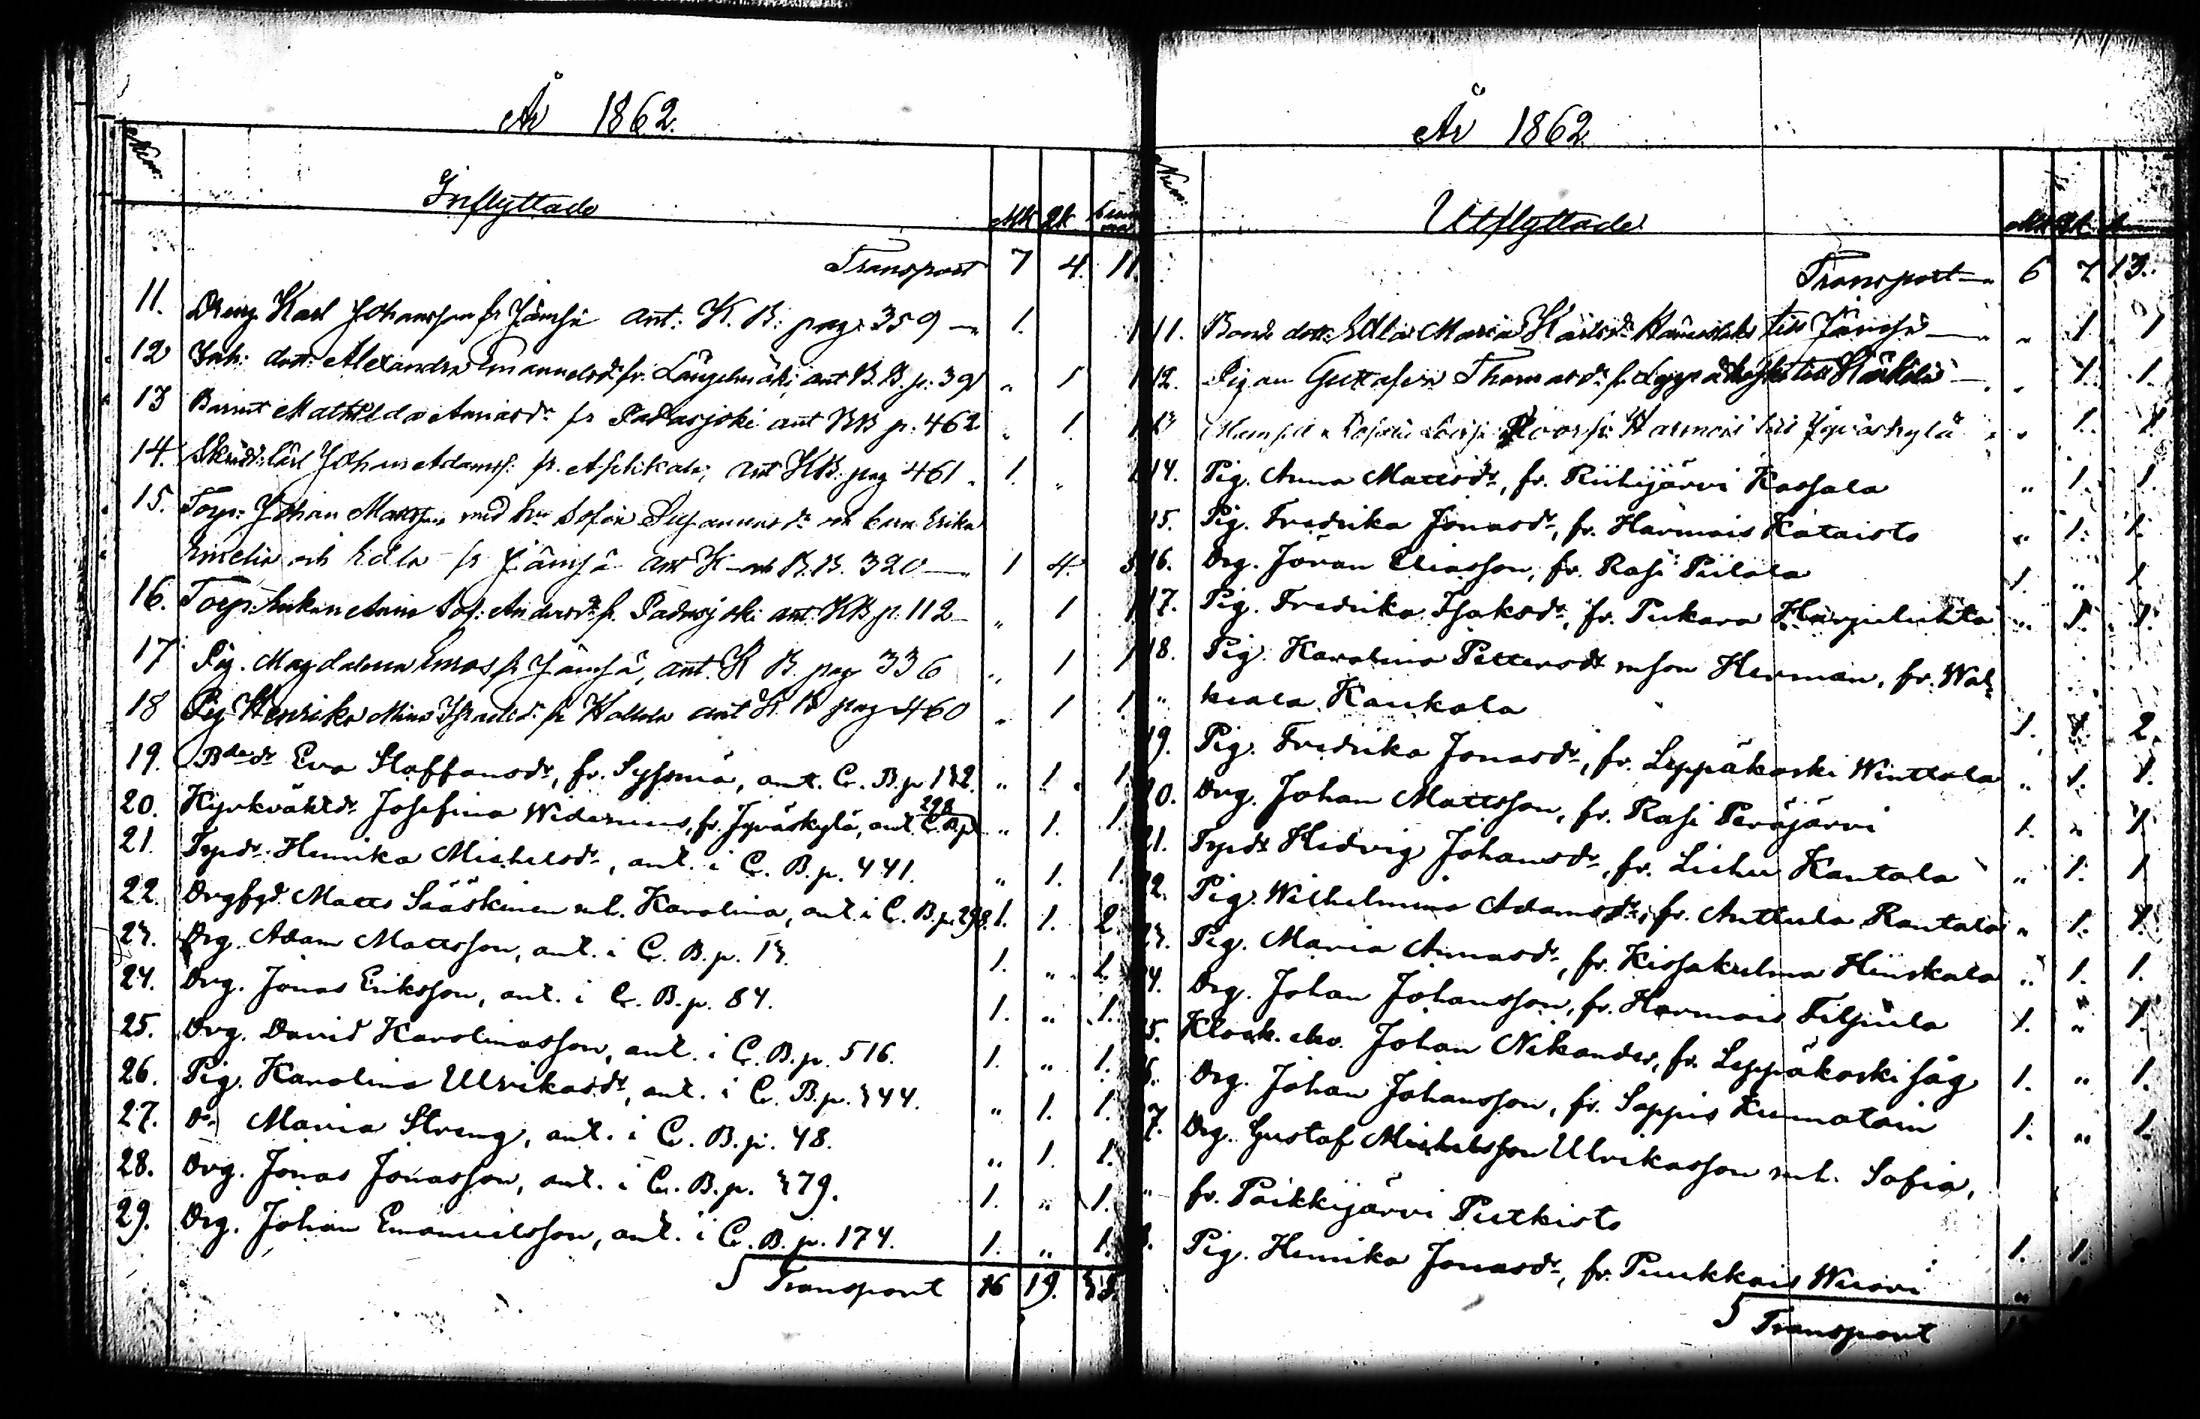 År 1862.
Num:
Inflyttade
Mk Qk Summa
Transport 7 4. 11.
11. Dreng Karl Johansson fr Jämsä ant: K. B: pag: 359 — 1. 1
12 Inh: dott: Alexandra Emanuelsdr fr. Längelmäki, ant B. B. p: 39 „ 1
13 Barnet Mathilda Annasdr fr Padasjoki ant BB p. 462 „ 1.
14. Skrädd: lärl Johan Adamss: fr. Asikkala, ant KB: pag 461 1. „
15. Torp: Johan Mattsson med hu Sofia Susannasdr och barn Erika
Emelia och Edla fr Jämsä ant K— och B.B. 320 — 1 4. 5
16. Torp: Enkan Anna Sof: Andersdr fr. Padasjoki ant: KB p. 112 — „ 1
17 Pig. Magdalena Enos fr Jämsä, ant. K B. pag 336 „ 1 1
18 Pig Henrika Mina Israelsdr fr Hollola ant K B pag 460 „ 1 1
19. Bdedr Eva Staffansdr, fr. Syssmä, ant. C. B. p 132. „ 1. 1.
20. Kyrkväktdr Josefina Widenius, fr. Jyväskylä, ant. C. B. p 298 „ 1. 1.
21. Tpdr Henrika Michelsdr, ant. i C. B. p. 441. „ 1. 1.
22. Drgfgd. Matts Sääskinen ml. Karolina, ant. i C. B. p. 298. 1. 1. 2.
23. Drg. Adam Mattsson, ant. i C. B. p. 13. 1. „ 1.
24. Drg. Jonas Eriksson, ant. i C. B. p. 84. 1. „ 1.
25. Drg. David Karolinasson, ant. i C. B. p. 516. 1. „ 1.
26. Pig. Karolina Ulrikasdr, ant. i C. B. p. 344. „ 1. 1.
27. do Maria Streng, ant. i C. B. p. 48. „ 1. 1.
28. Drg. Jonas Jonasson, ant. i C. B. p. 379. 1. „ 1.
29. Drg. Johan Emanuelsson, ant. i C. B. p. 174. 1. „ 1.
Transport 16 19. 35.
År 1862
Num:
Utflyttade
Mk Qk
Transport — 6 7 13.
11. Bonde dott: Edla Maria Karlsdr till Jämsä — „ 1 1
12. Pigan Gustafva Thomasdr fr Leppäkoski till — „ 1. 1.
13 Mamsell Rosalie Lovisa Roos fr. Harmois till Jyväskylä „ 1. 1.
14. Pig. Anna Mattsdr, fr. Riihijärvi Kassala „ 1. 1.
15. Pig. Fredrika Jonasdr, fr. Harmois Kataisto „ 1. 1.
16. Drg. Jöran Eliasson, fr. Rasi Piilola 1. „ 1
17. Pig. Fredrika Isaksdr, fr. Pukara Harjulahta „ 1. 1.
18. Pig. Karolina Pettersdr m son Herman, fr. Wal=
„ keala Kaukola 1. 1. 2.
19. Pig. Fredrika Jonasdr, fr. Leppäkoski Winttola „ 1. 1.
20. Drg. Johan Mattsson, fr. Rasi Peräjärvi 1. „ 1
21. Tpdr Hedvig Johansdr, fr. Liehu Kantala „ 1. 1
22. Pig. Wilhelmina Adamsdr, fr. Anttula Rantala „ 1. 1.
23. Pig. Maria Annasdr, fr. Kissakulma Hinskala „ 1. 1.
24. Drg. Johan Johansson, fr. Harmois Filppula 1. „ 1.
25. Klock. elev. Johan Nikander, fr. Leppäkoski såg 1. „ 1.
26. Drg. Johan Johansson, fr. Seppis Kumatoin 1. „ 1.
27. Drg. Gustaf Michelsson Ulrikasson ml. Sofia,
„ fr. Paikkijärvi Putkisto 1. 1.
Pig. Henrika Jonasdr, fr. Puukkois Wuori „
Transport